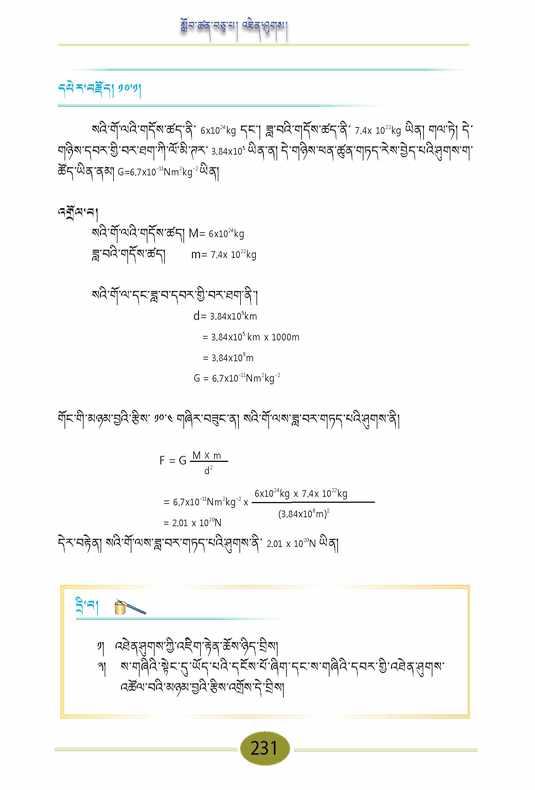 སློབ་ཚན་བཅུ་པ། འཐེན་ཤུགས།
དཔེར་བརྗོད། ༡༠་༡།
སའི་གོ་ལའི་གདོས་ཚད་ནི་ 6x10²⁴kg དང་། ཟླ་བའི་གདོས་ཚད་ནི་ 7.4x 10²²kg ཡིན། གལ་ཏེ། དེ་
གཉིས་དབར་གྱི་བར་ཐག་ཀི་ལོ་མི་ཊར་ 3.84x10⁵ ཡིན་ན། དེ་གཉིས་ཕན་ཚུན་གཏད་རེས་བྱེད་པའི་ཤུགས་ག་
ཚོད་ཡིན་ནམ། G=6.7x10⁻¹¹Nm²kg⁻² ཡིན།
འགྲོལ་བ།
སའི་གོ་ལའི་གདོས་ཚད། M= 6x10²⁴kg
ཟླ་བའི་གདོས་ཚད། m= 7.4x 10²²kg
སའི་གོ་ལ་དང་ཟླ་བ་དབར་གྱི་བར་ཐག་ནི་།
d= 3.84x10⁵km
= 3.84x10⁵ km x 1000m
= 3.84x10⁸m
G = 6.7x10⁻¹¹Nm²kg⁻²
གོང་གི་མཉམ་བྱའི་རྩིས་ ༡༠་༤ གཞིར་བཟུང་ན། སའི་གོ་ལས་ཟླ་བར་གཏད་པའི་ཤུགས་ནི།
F = G M x m
d²
= 6.7x10⁻¹¹Nm²kg⁻² x 6x10²⁴kg x 7.4x 10²²kg
(3.84x10⁸m)²
= 2.01 x 10²⁰N
དེར་བརྟེན། སའི་གོ་ལས་ཟླ་བར་གཏད་པའི་ཤུགས་ནི་ 2.01 x 10²⁰N ཡིན།
དྲི་བ།
༡། འཐེན་ཤུགས་ཀྱི་འཇིག་རྟེན་ཆོས་ཉིད་བྲིས།
༢། ས་གཞིའི་སྟེང་དུ་ཡོད་པའི་དངོས་པོ་ཞིག་དང་ས་གཞིའི་དབར་གྱི་འཐེན་ཤུགས་
འཚོལ་བའི་མཉམ་བྱའི་རྩིས་འགྲོས་དེ་བྲིས།
231